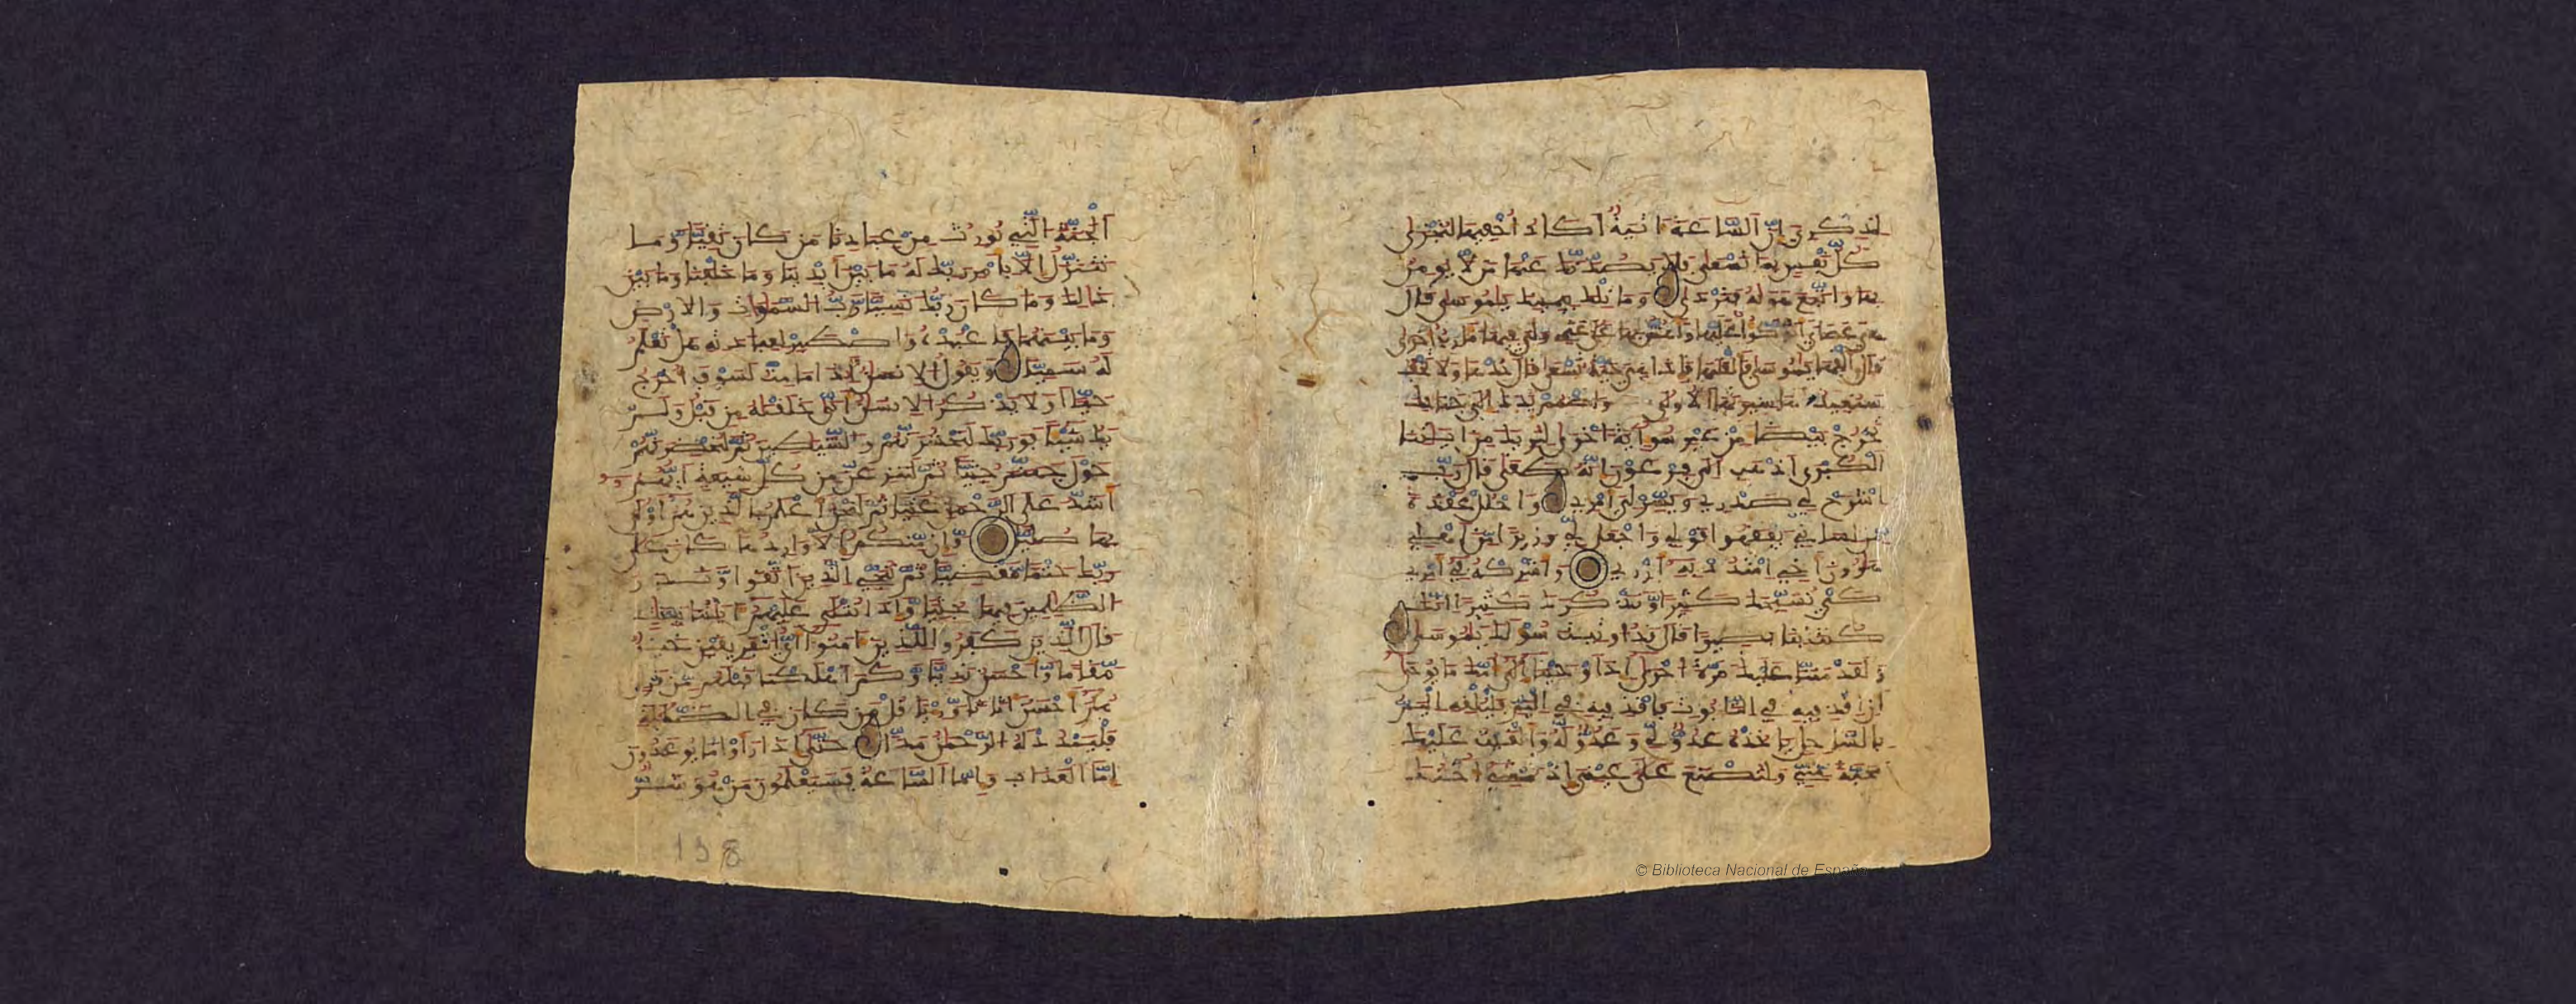 لذكري إن الساعة اتية أكاد أخفيها لتجزى
كل نفس بما تسعى فلا يصدنك عنها من لا يومن
بها واتبع هويه فتردى وما تلك بيمينك يموسى قال
هي عصاي أتوكؤا عليها وأهش بها على غنمي ولي فيها مارب أخرى
قال ألقها يموسى فألقيها فإذا هي حية تسعى قال خذها ولا تخف
سنعيدها سيرتها الأولى واضمم يدك إلى جناحك
تخرج بيضا من غير سوء اية أخرى لنريك من ايتنا
الكبرى اذهب إلى فرعون إنه طغى قال رب
اشرح لي صدري ويسر لي أمري واحلل عقدة
من لساني يفقهوا قولي واجعل لي وزيرا من أهلي
هرون أخي اشدد به أزري وأشركه في أمري
كي نسبحك كثيرا ونذكرك كثيرا إنك
كنت بنا بصيرا قال قد أوتيت سؤلك يموسى
ولقد مننا عليك مرة أخرى إذ أوحينا إلى أمك ما يوحى
أن اقذفيه في التابوت فاقذفيه في اليم فليلقه اليم
بالساحل ياخذه عدو لي وعدو له وألقيت عليك
محبة مني ولتصنع على عيني إذ تمشي أختك
الجنة التي نورث من عبادنا من كان تقيا وما
نتنزل إلا بأمر ربك له ما بين أيدينا وما خلفنا وما بين
ذلك وما كان ربك نسيا رب السموات والارض
وما بينهما فاعبده واصطبر لعبادته هل تعلم
له سميا ويقول الانسن أاذا ما مت لسوف أخرج
حيا أولا يذكر الانسن أنا خلقنه من قبل ولم
يك شيا فوربك لنحشرنهم والشيطين ثم لنحضرنهم
حول جهنم جثيا ثم لننزعن من كل شيعة أيهم
أشد على الرحمن عتيا ثم لنحن أعلم بالذين هم أولى
بها صليا وإن منكم إلا واردها كان على
ربك حتما مقضيا ثم ننجي الذين اتقوا ونذر
الظلمين فيها جثيا وإذا تتلى عليهم ايتنا بينت
قال الذين كفروا للذين امنوا أي الفريقين خير
مقاما وأحسن نديا وكم أهلكنا قبلهم من قرن
هم أحسن أثثا وريا قل من كان في الضللة
فليمدد له الرحمن مدا حتى إذا رأوا ما يوعدون
إما العذاب وإما الساعة فسيعلمون من هو شر
138
© Biblioteca Nacional de España